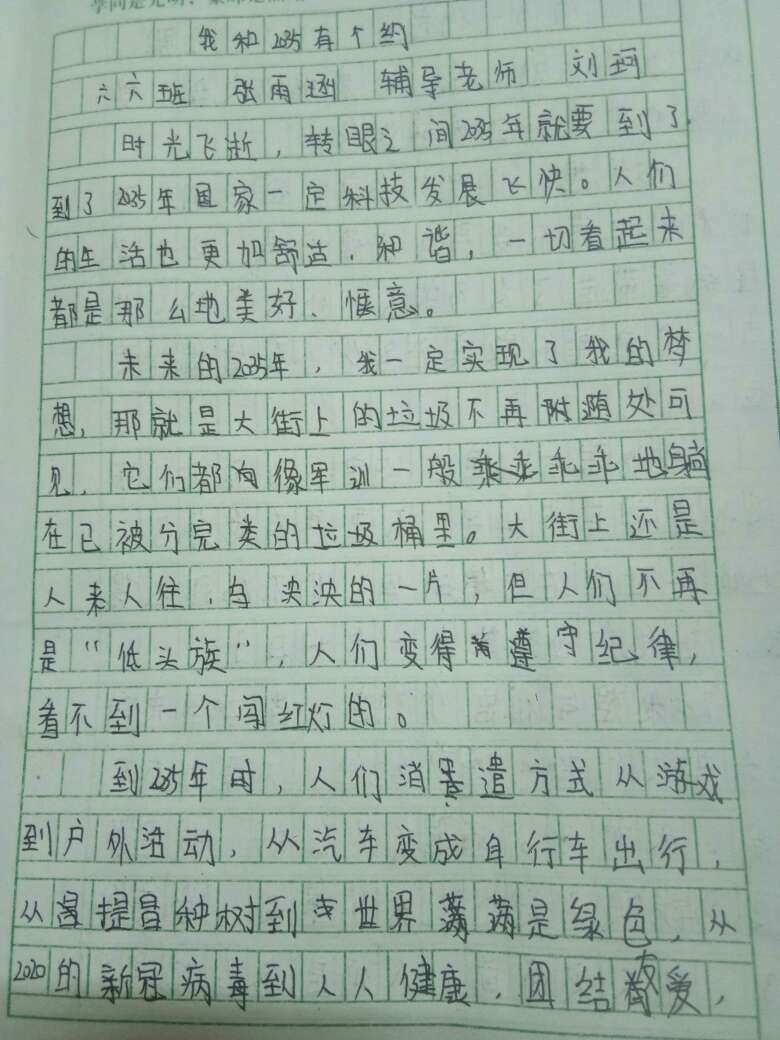 我和2035有个约
六六班 张雨涵 辅导老师 刘珂
时光飞逝，转眼之间2035年就要到了.
到了2035年国家一定科技发展飞快。人们
的生活也更加舒适、和谐，一切看起来
都是那么地美好、惬意。
未来的2035年，我一定实现了我的梦
想，那就是大街上的垃圾不再随处可
见，它们都像军训一般乖乖地躺
在已被分完类的垃圾桶里。大街上还是
人来人往，乌泱泱的一片，但人们不再
是“低头族”，人们变得遵守纪律，
看不到一个闯红灯的。
到2035年时，人们消遣方式从游戏
到户外活动，从汽车变成自行车出行，
从提倡种树到世界满满是绿色，从
2020的新冠病毒到人人健康，团结友爱，